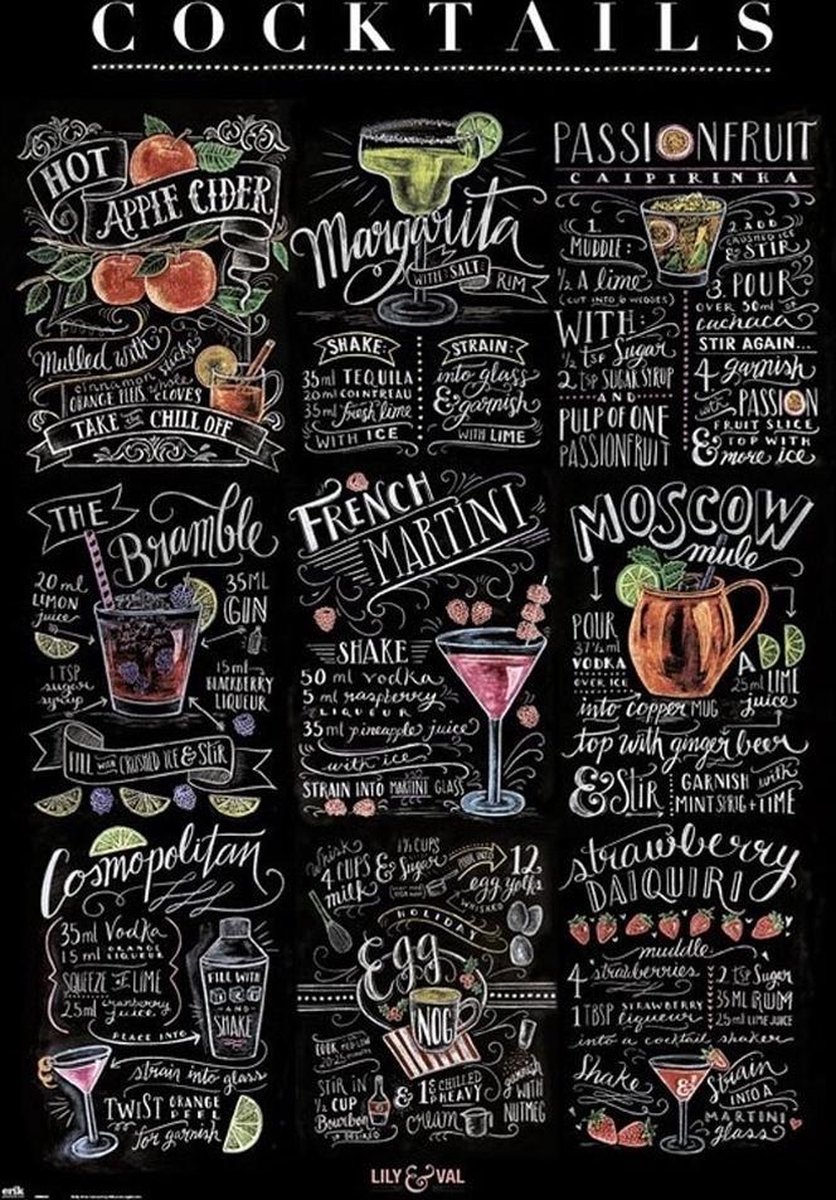 COCKTAILS
HOT
APPLE CIDER
Mulled with
cinnamon sticks
ORANGE PEELS whole CLOVES
TAKE THE CHILL OFF
Margarita
WITH SALT RIM
SHAKE:
35ml TEQUILA
20ml COINTREAU
35ml fresh lime
WITH ICE
STRAIN:
into glass
& garnish
WITH LIME
PASSIONFRUIT
CAIPIRINHA
1.
MUDDLE:
½ A lime
(CUT INTO 6 WEDGES)
WITH:
½ tsp Sugar
2 tsp SUGAR SYRUP
AND
PULP OF ONE
PASSIONFRUIT
2 ADD
CRUSHED ICE
& STIR
3. POUR
OVER 50ml OF
cachaca
STIR AGAIN...
4 garnish
with PASSION
FRUIT SLICE
& TOP WITH
more ice
THE
Bramble
20 ml
LIMON
juice
1 TSP
sugar
syrup
35ML
GIN
15 ml
BLACKBERRY
LIQUEUR
FILL WITH CRUSHED ICE & STIR
FRENCH
MARTINI
SHAKE
50 ml vodka
5 ml raspberry
LIQUEUR
35ml pineapple juice
with ice
STRAIN INTO MARTINI GLASS
MOSCOW
mule
POUR
37½ ml
VODKA
OVER ICE
into copper MUG
A
25ml LIME
juice
top with ginger beer
& STIR
GARNISH with
MINT SPRIG + LIME
Cosmopolitan
35ml Vodka
15ml ORANGE LIQUEUR
SQUEEZE OF LIME
25ml cranberry juice
PLACE INTO
FILL WITH
ICE
AND
SHAKE
strain into glass
TWIST ORANGE PEEL
for garnish
whisk
4 CUPS
milk
& Sugar
POUR INTO
12
egg yolks
WHISKED
HOLIDAY
Egg
NOG
COOK MED-LOW
20-25 minutes
STIR IN
½ CUP
Bourbon
IF DESIRED
& 1 CHILLED HEAVY
cream
garnish
WITH
NUTMEG
strawberry
DAIQUIRI
muddle
4 strawberries
1 TBSP STRAWBERRY liqueur
2 TSP Sugar
35ML RUM
25ml LIME JUICE
into a cocktail shaker
Shake
&
Strain
INTO A
MARTINI
glass
LILY & VAL
erik